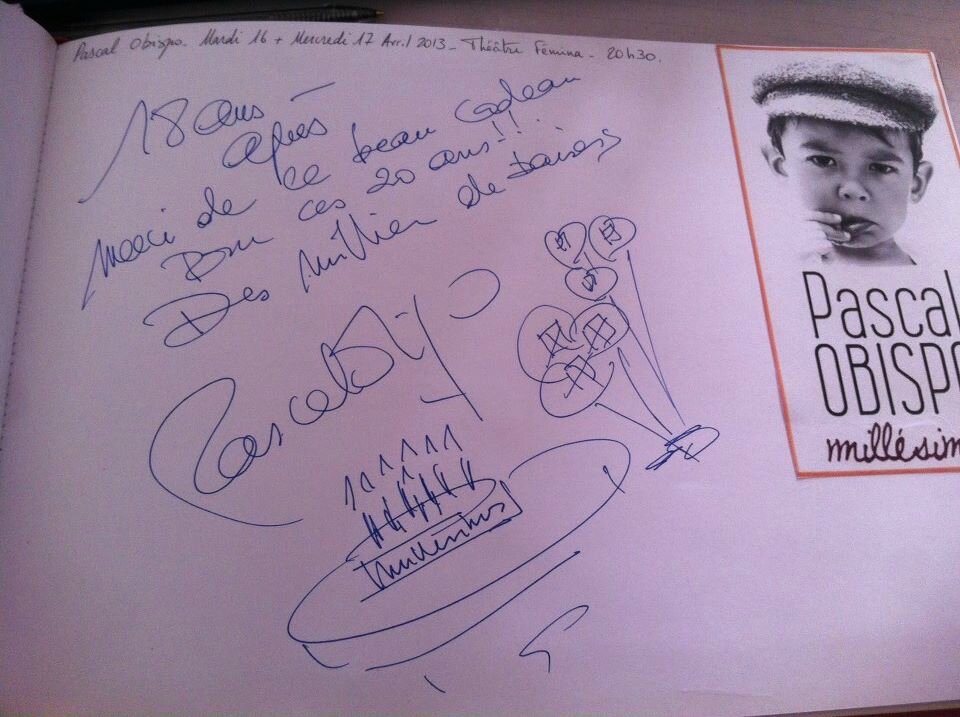 Pascal Obispo. Mardi 16 + Mercredi 17 Avril 2013 - Théâtre Fémina - 20h30.
18 ans
après
Merci de ce beau cadeau
Pour ces 20 ans!!!
Des millier de baisers
Pascal Obispo
Pascal
OBISPO
millésim